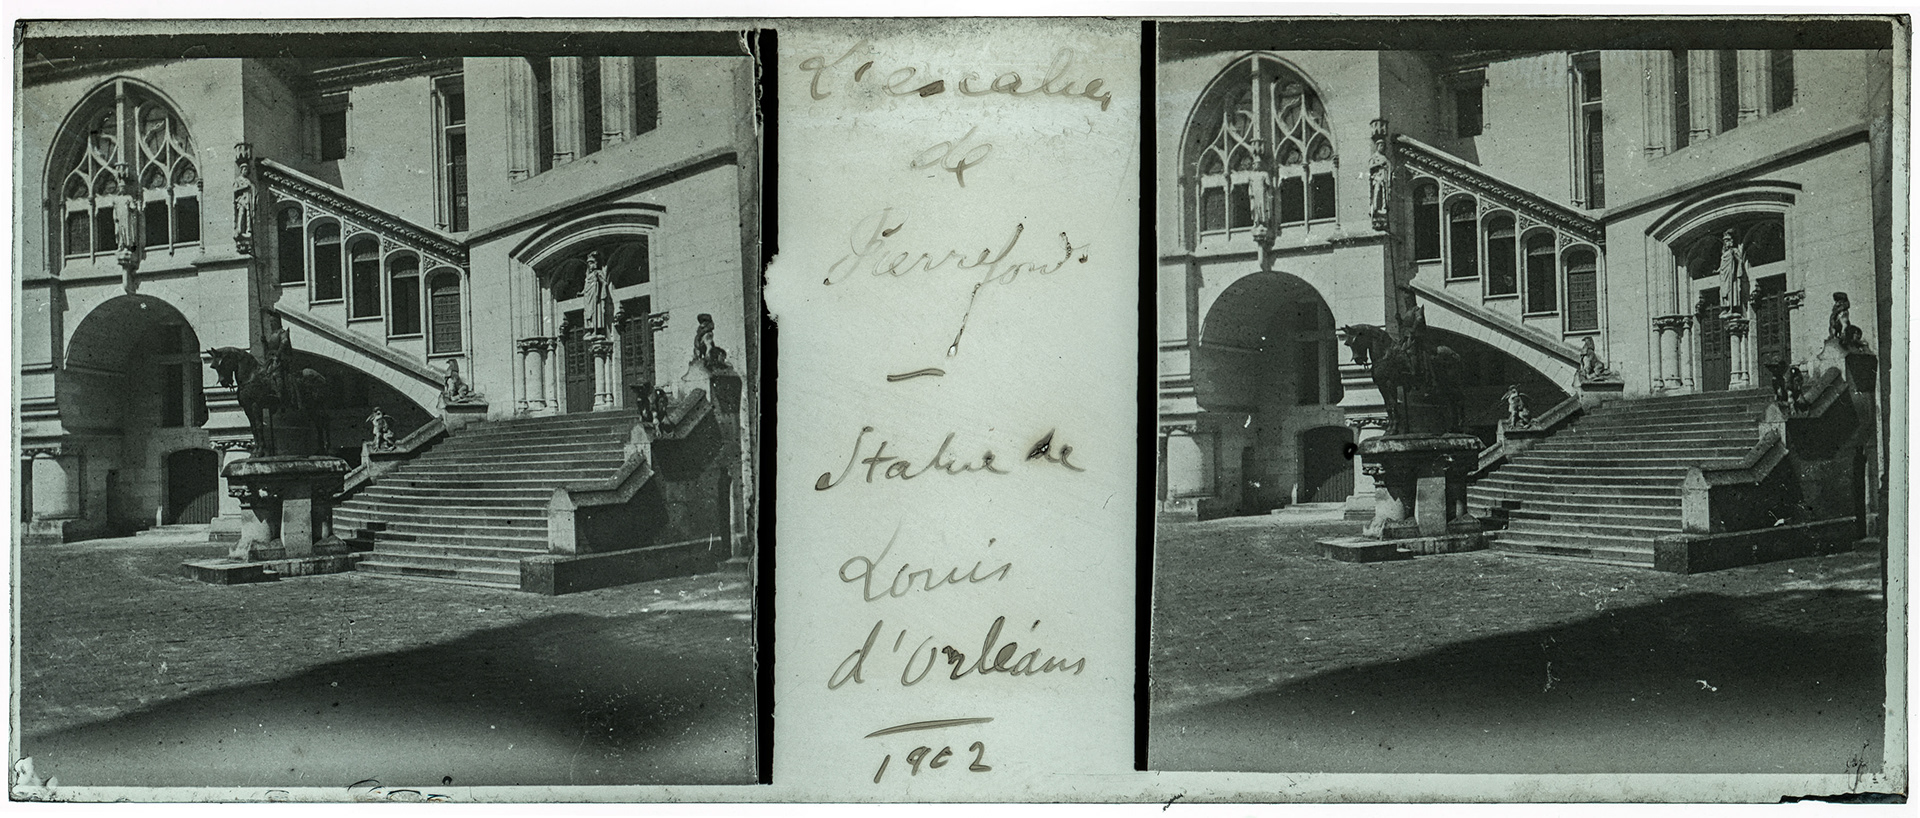 L'escalier
de
Pierrefonds
—
Statue de
Louis
d'Orléans
—
1902